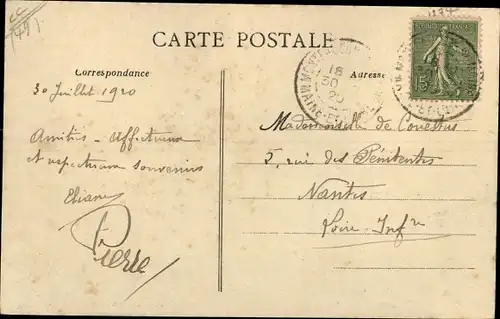 CARTE POSTALE
Correspondance
Adresse
30 Juillet 1920
Amitiés - Affectueux
et respectueux souvenirs
Eliane
Pierre
18
30
20
15
Mademoiselle de
5, rue des Pénitentes
Nantes
Loire Infre